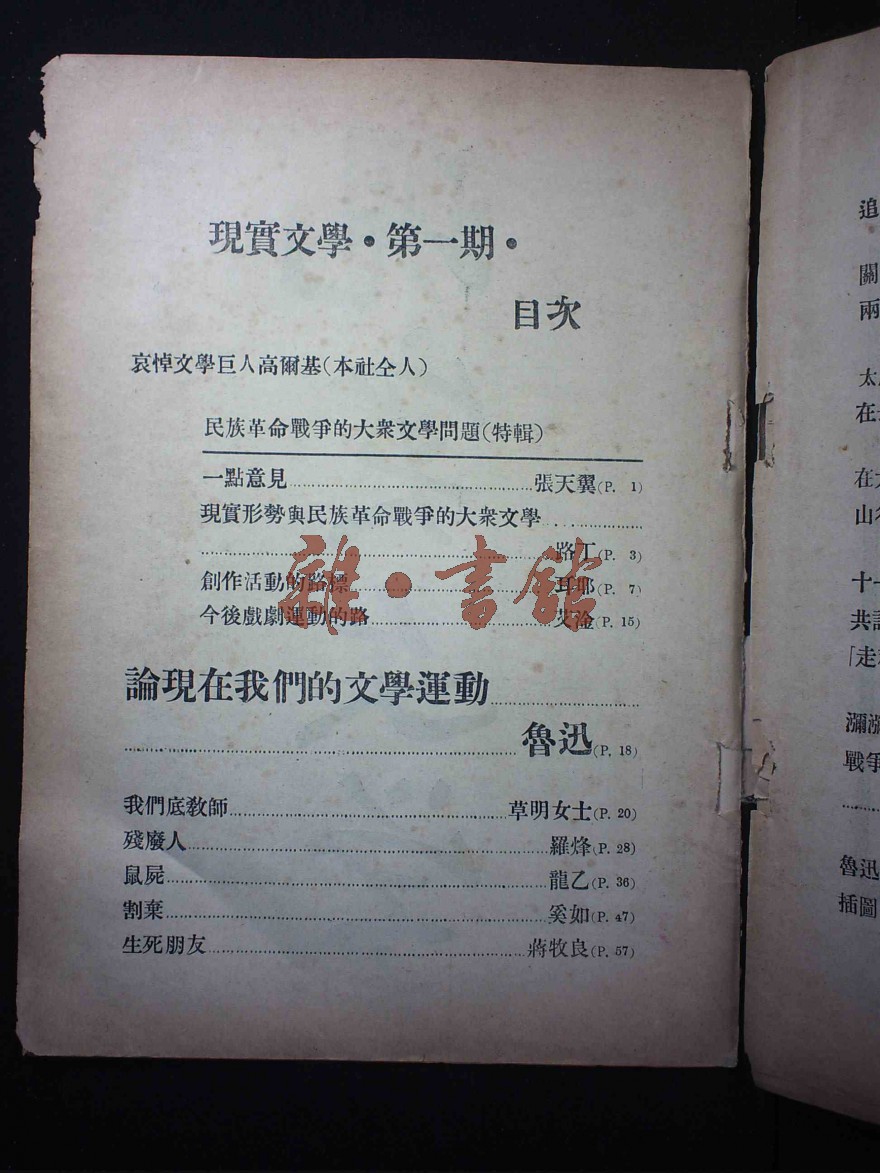 現實文學·第一期·
目次
哀悼文學巨人高爾基(本社仝人)
民族革命戰爭的大衆文學問題(特輯)
一點意見................張天翼(P. 1)
現實形勢與民族革命戰爭的大衆文學................
................路丁(P. 3)
創作活動的路標................耳耶(P. 7)
今後戲劇運動的路................艾淦(P. 15)
雜·書館
論現在我們的文學運動................
................魯迅(P. 18)
我們底敎師................草明女士(P. 20)
殘廢人................羅烽(P. 28)
鼠屍................龍乙(P. 36)
割棄................奚如(P. 47)
生死朋友................蔣牧良(P. 57)
追
關
兩
太
在
在
山
十
共
「走
瀰
戰爭
魯迅
插圖